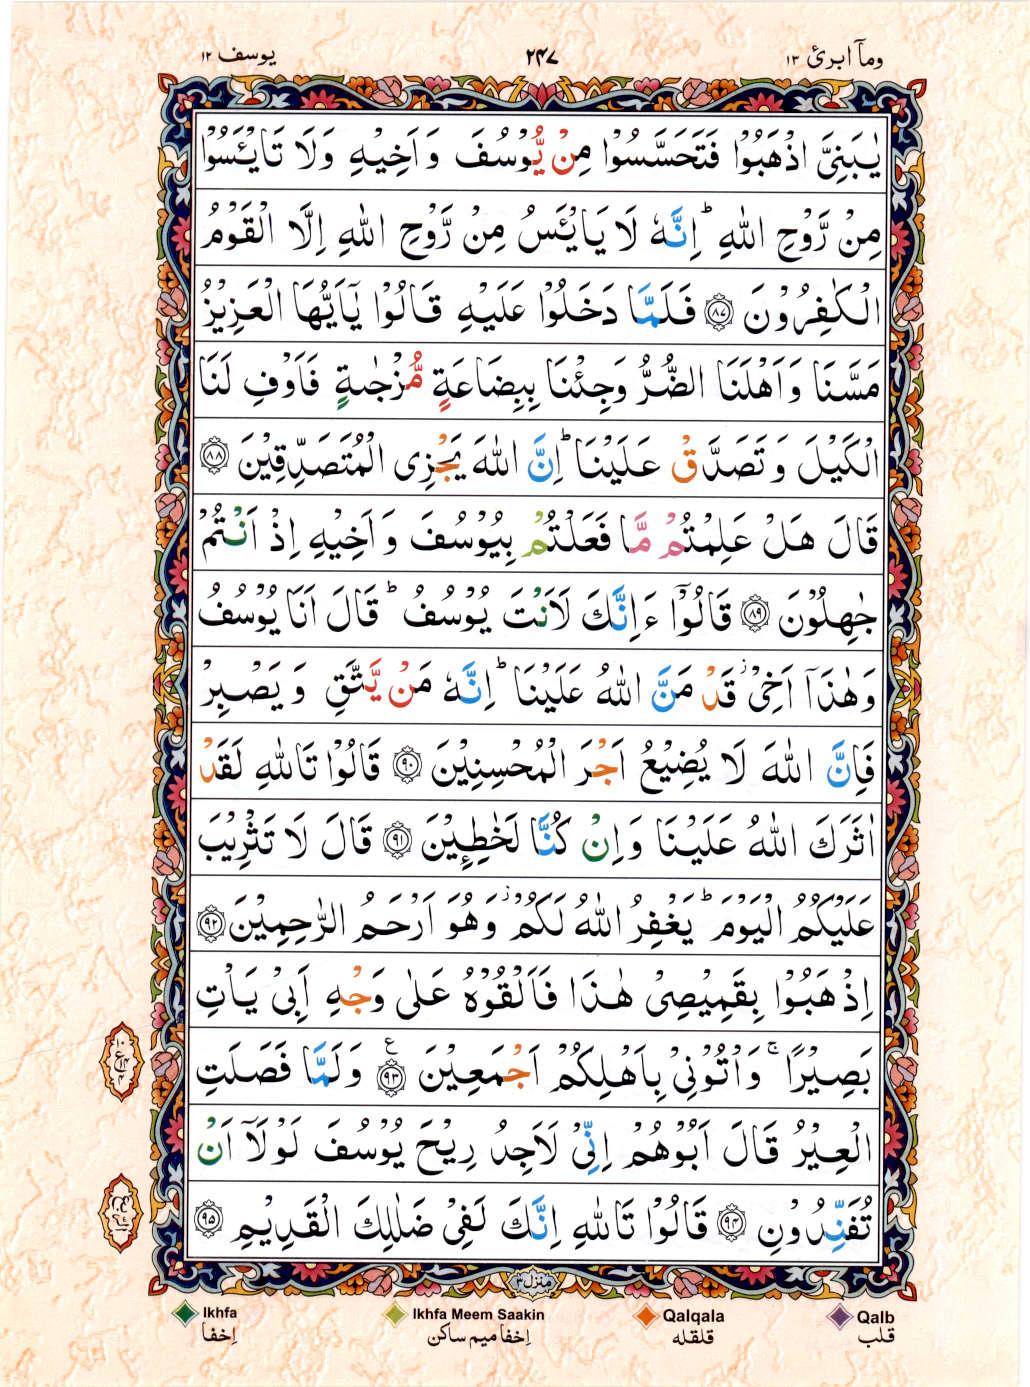 ومآ ابرئ ۱۳
۲۴۷
یوسف ۱۲
یٰبَنِیَّ اذْهَبُوْا فَتَحَسَّسُوْا مِنْ یُّوْسُفَ وَاَخِیْهِ وَلَا تَایْـَٔسُوْا
مِنْ رَّوْحِ اللهِ ؕ اِنَّهٗ لَا یَایْـَٔسُ مِنْ رَّوْحِ اللهِ اِلَّا الْقَوْمُ
الْكٰفِرُوْنَ ۝۸۷ فَلَمَّا دَخَلُوْا عَلَیْهِ قَالُوْا یٰۤاَیُّهَا الْعَزِیْزُ
مَسَّنَا وَاَهْلَنَا الضُّرُّ وَجِئْنَا بِبِضَاعَةٍ مُّزْجٰىةٍ فَاَوْفِ لَنَا
الْكَیْلَ وَتَصَدَّقْ عَلَیْنَا ؕ اِنَّ اللهَ یَجْزِی الْمُتَصَدِّقِیْنَ ۝۸۸
قَالَ هَلْ عَلِمْتُمْ مَّا فَعَلْتُمْ بِیُوْسُفَ وَاَخِیْهِ اِذْ اَنْتُمْ
جٰهِلُوْنَ ۝۸۹ قَالُوْۤا ءَاِنَّكَ لَاَنْتَ یُوْسُفُ ؕ قَالَ اَنَا یُوْسُفُ
وَهٰذَاۤ اَخِیْ ؗ قَدْ مَنَّ اللهُ عَلَیْنَا ؕ اِنَّهٗ مَنْ یَّتَّقِ وَیَصْبِرْ
فَاِنَّ اللهَ لَا یُضِیْعُ اَجْرَ الْمُحْسِنِیْنَ ۝۹۰ قَالُوْا تَاللهِ لَقَدْ
اٰثَرَكَ اللهُ عَلَیْنَا وَاِنْ كُنَّا لَخٰطِـِٕیْنَ ۝۹۱ قَالَ لَا تَثْرِیْبَ
عَلَیْكُمُ الْیَوْمَ ؕ یَغْفِرُ اللهُ لَكُمْ ؗ وَهُوَ اَرْحَمُ الرّٰحِمِیْنَ ۝۹۲
اِذْهَبُوْا بِقَمِیْصِیْ هٰذَا فَاَلْقُوْهُ عَلٰی وَجْهِ اَبِیْ یَاْتِ
بَصِیْرًا ۚ وَاْتُوْنِیْ بِاَهْلِكُمْ اَجْمَعِیْنَ ۝۹۳ ع وَلَمَّا فَصَلَتِ
الْعِیْرُ قَالَ اَبُوْهُمْ اِنِّیْ لَاَجِدُ رِیْحَ یُوْسُفَ لَوْلَاۤ اَنْ
تُفَنِّدُوْنِ ۝۹۴ قَالُوْا تَاللهِ اِنَّكَ لَفِیْ ضَلٰلِكَ الْقَدِیْمِ ۝۹۵
منزل ۳
Ikhfa
اِخفا
Ikhfa Meem Saakin
اِخفا میم ساکن
Qalqala
قلقله
Qalb
قلب